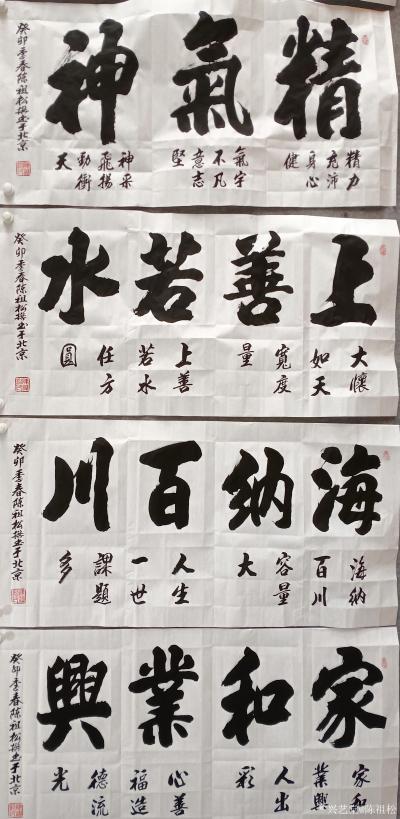 精氣神
精力充沛身心健
氣宇不凡意志堅
神采飛揚動衝天
癸卯季春陳祖松撰书于北京
上善若水
大懷如天寬度量
上善若水任方圓
癸卯季春陳祖松撰书于北京
海納百川
海納百川容量大
人生一世課題多
癸卯季春陳祖松撰书于北京
家和業興
家和業興人出彩
心善福造德流光
癸卯季春陳祖松撰书于北京
陈祖松